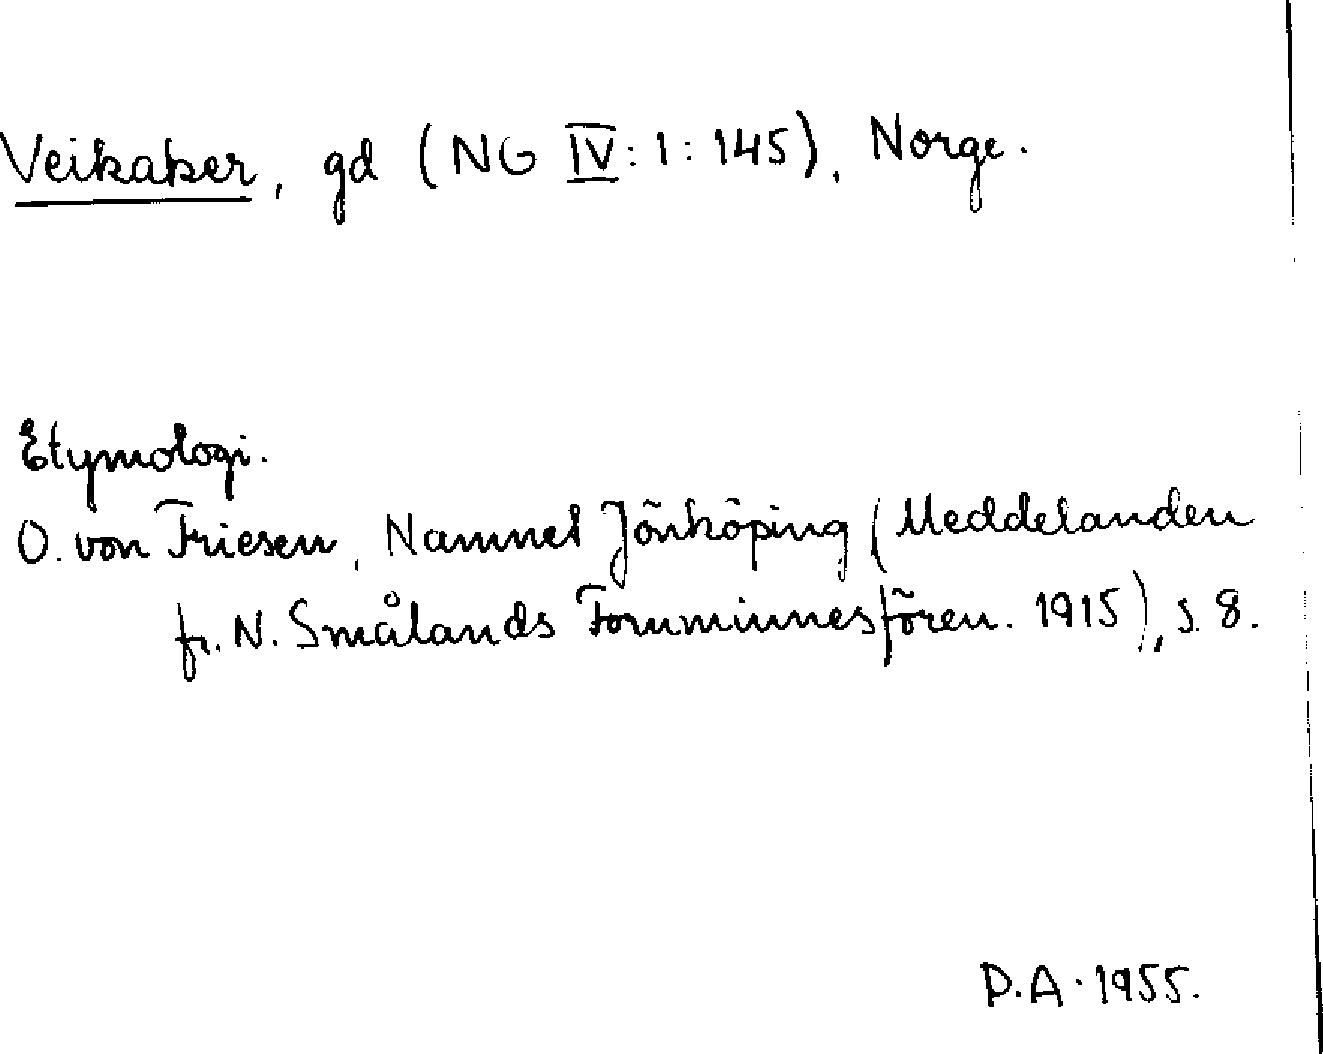 Veikaker, gd (NG IV:1:145), Norge.
Etymologi.
O. von Friesen, Namnet Jönköping (Meddelanden
fr. N. Smålands Fornminnesfören. 1915), s. 8.
D.A. 1955.